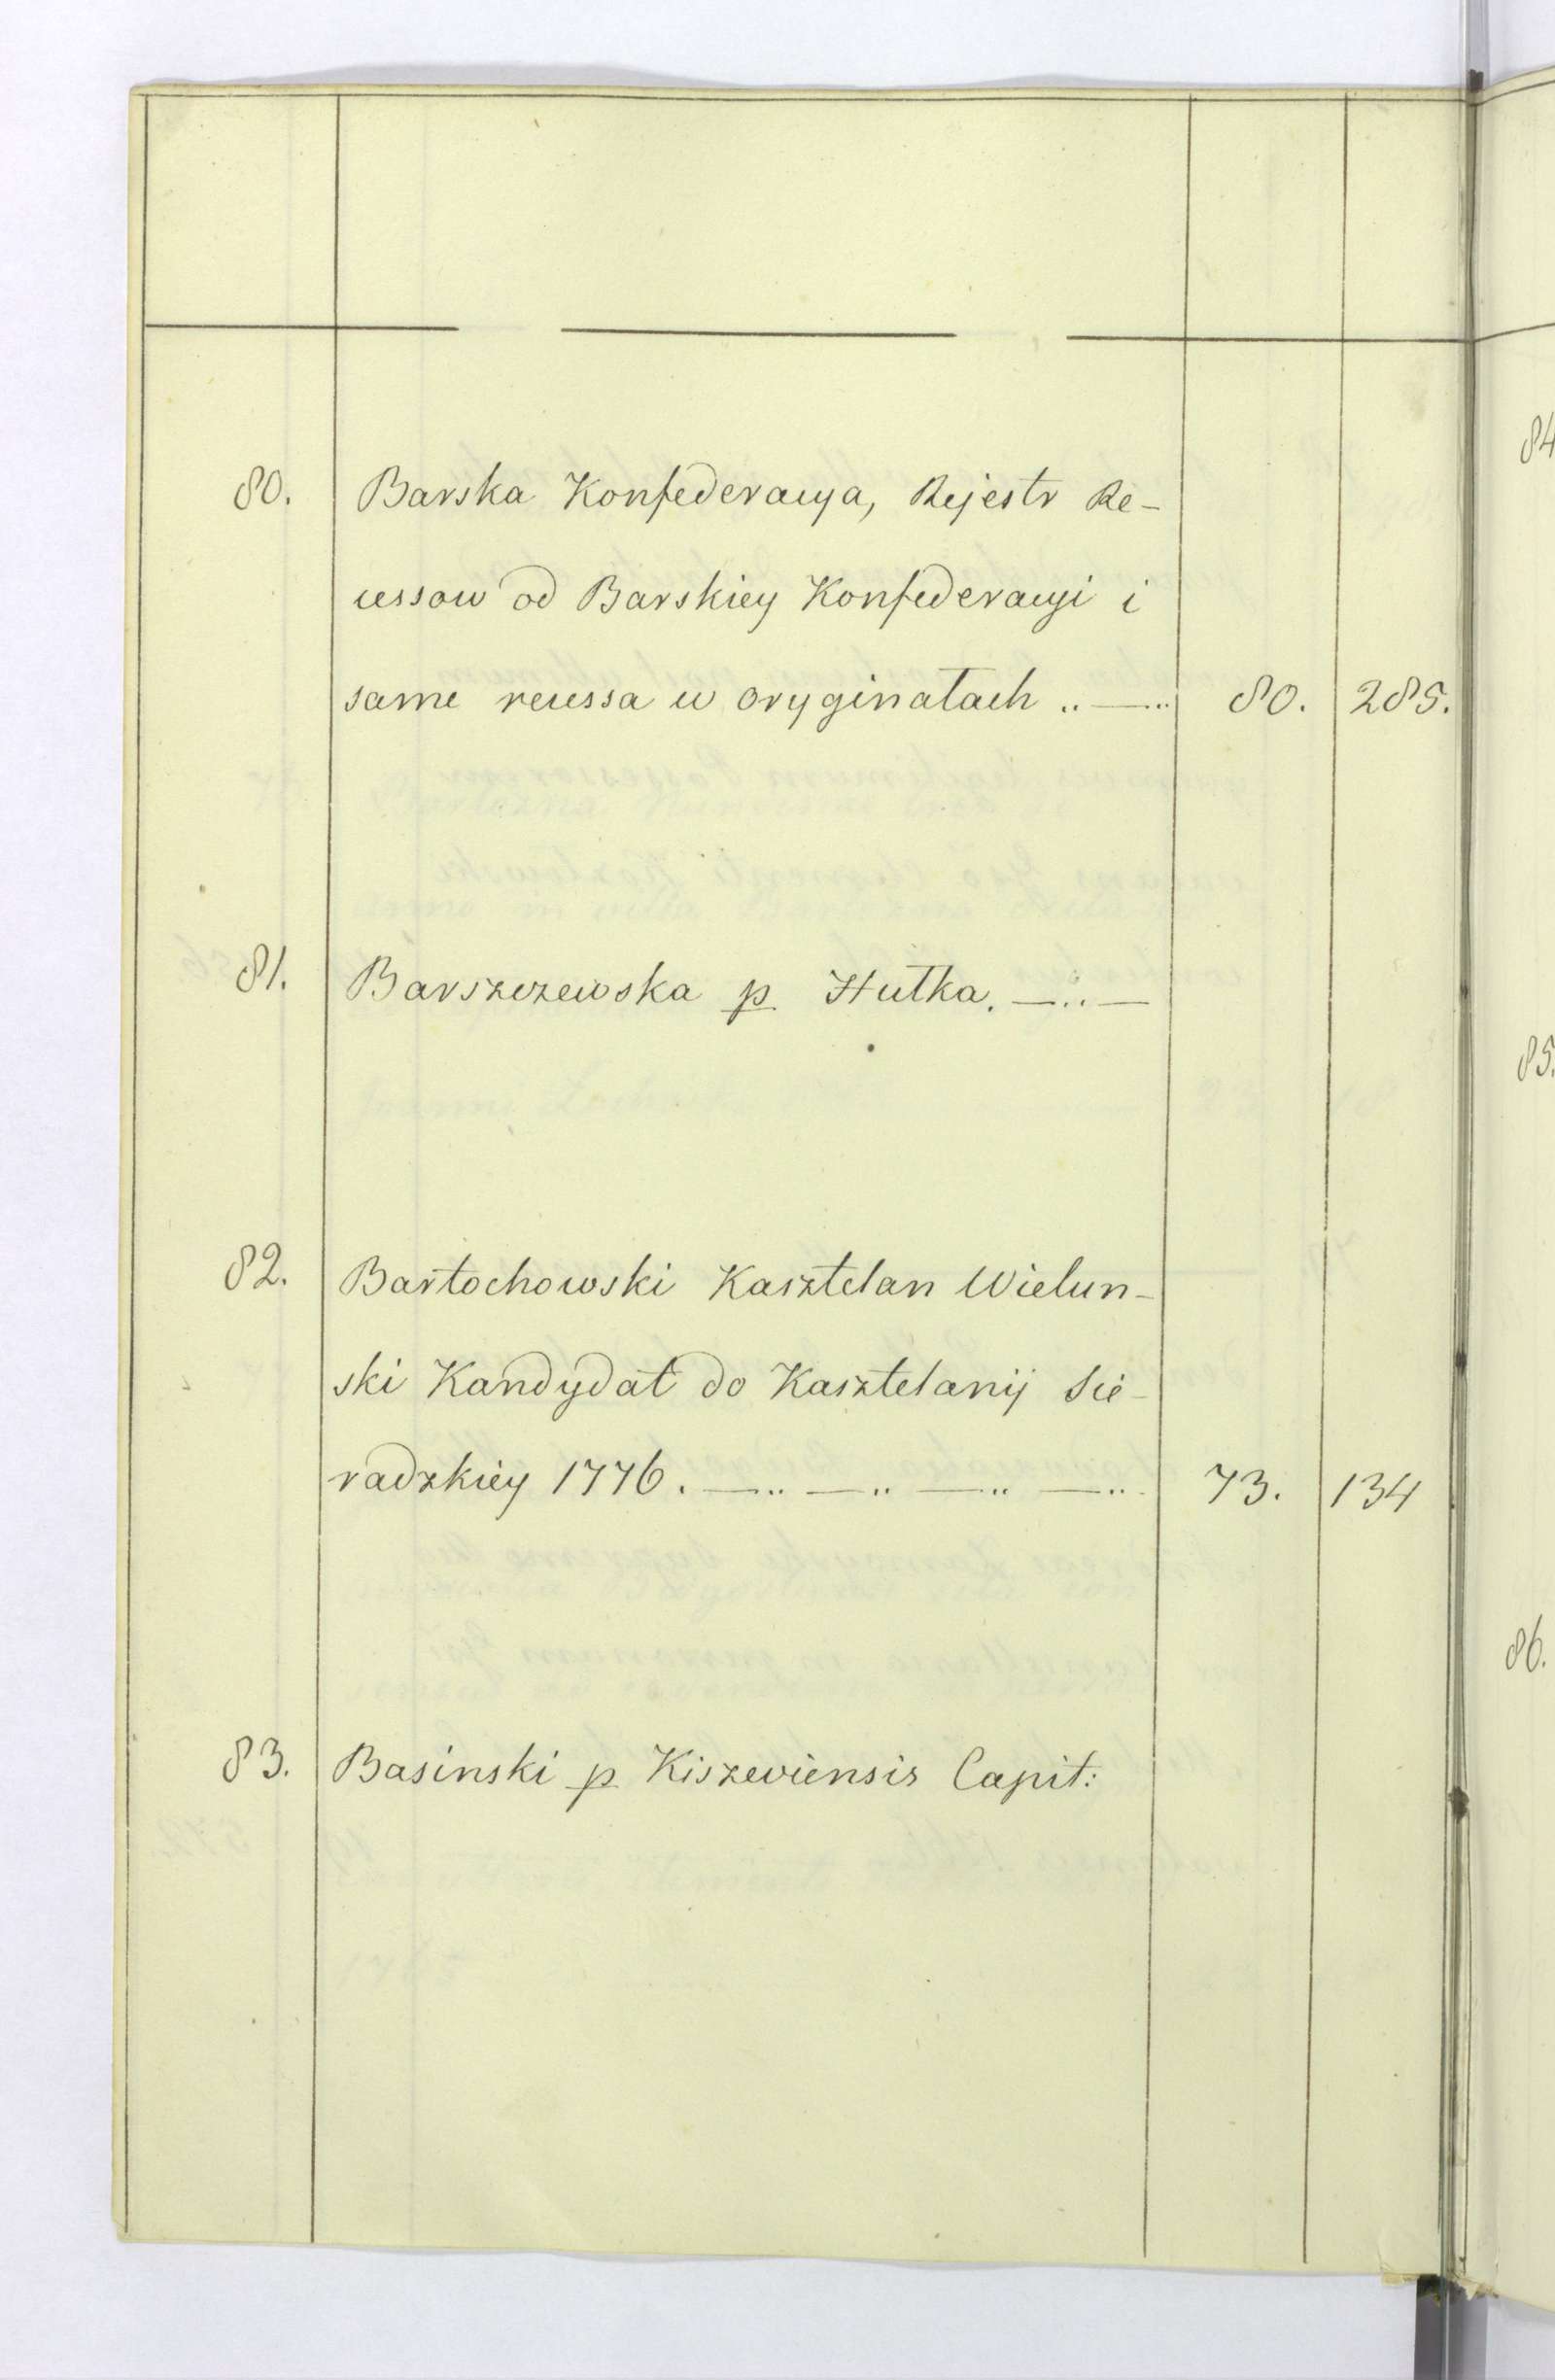 80. Barska Konfederacya, Rejestr Re-
cessow od Barskiey Konfederacyi i
same recessa w oryginałach ..—.. 80. 285.
81. Barszczewska p Hutka. —..—
82. Bartochowski Kasztelan Wielun-
ski Kandydat do Kasztelanij Sie-
radzkiey 1776. —.. —.. —.. —.. 73. 134
83. Basinski p Kiszeviensis Capit:
84
85.
86.